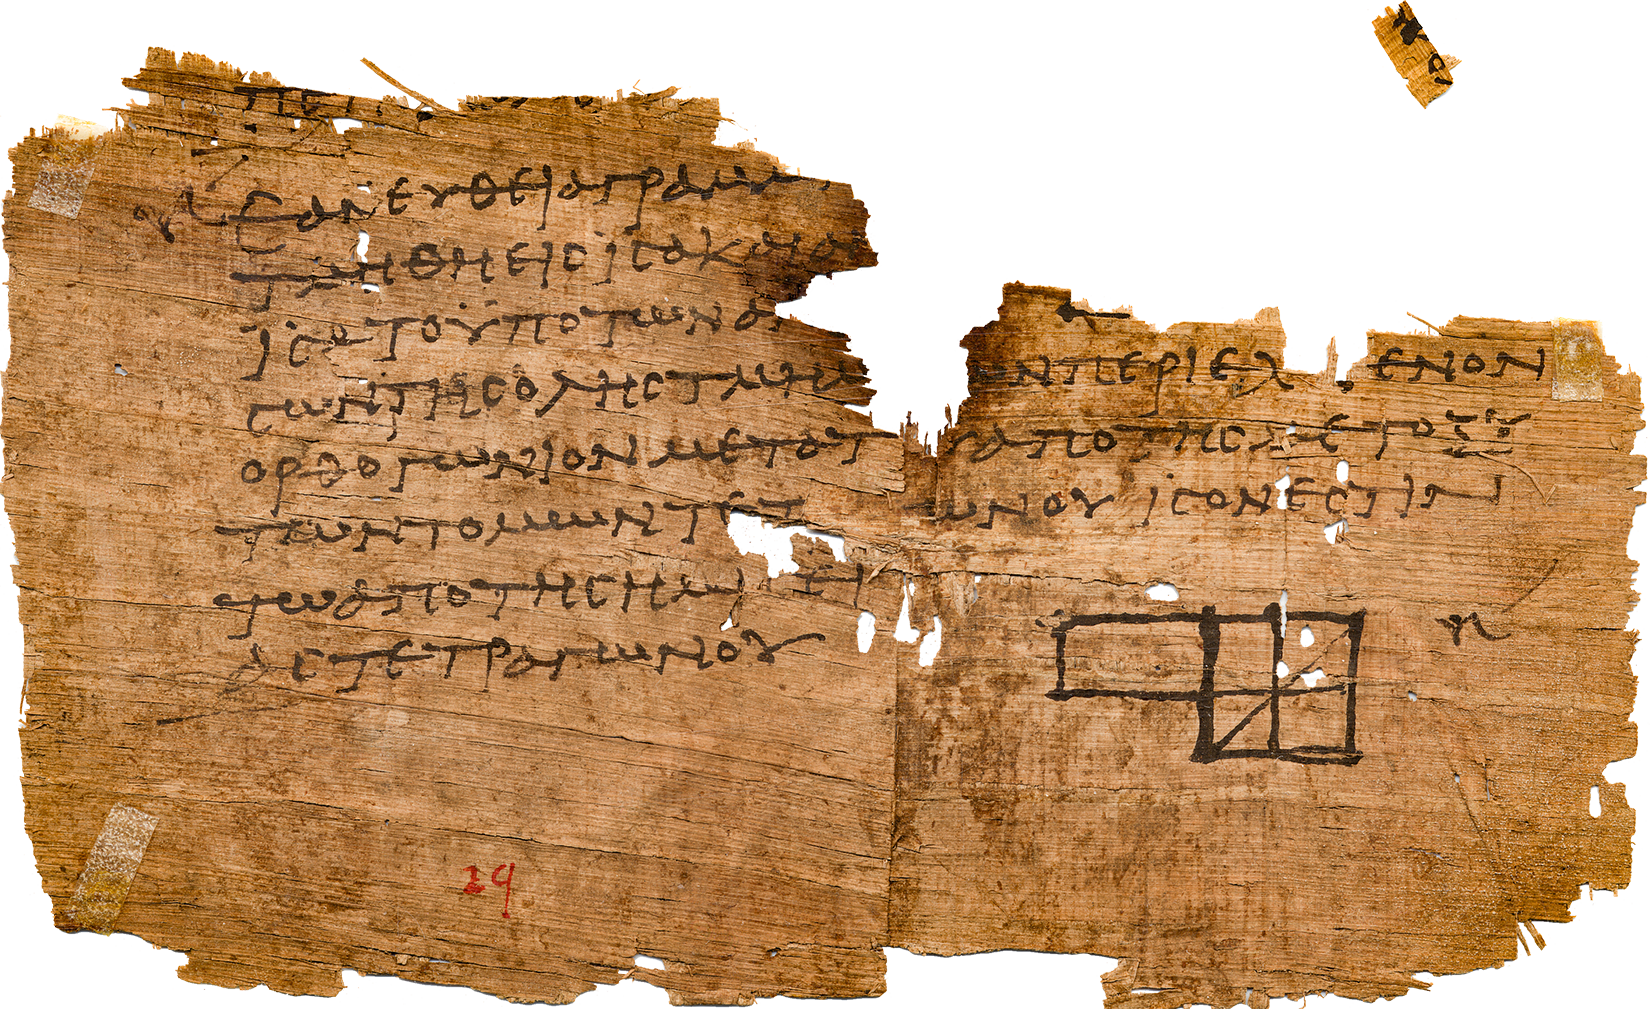 ΕΑΝ ΕΥΘΕΙΑ ΓΡΑΜΜ
ΤΜΗΘΗ ΕΙϹ ΙϹΑ ΚΑΙ Α
ΙϹΑ ΤΟ ΥΠΟ ΤΩΝ ΑΝ
ϹΩΝ ΤΗϹ ΟΛΗϹ ΤΜΗΜ ΩΝ ΠΕΡΙΕΧ ΕΝΟΝ
ΟΡΘΟΓΩΝΙΟΝ ΜΕΤΑ Τ Υ ΑΠΟ ΤΗϹ ΜΕΤΟΞΥ
ΤΩΝ ΤΟΜΩΝ ΤΕΤ ΩΝΟΥ ΙϹΟΝ ΕϹΤΙΝ
ΤΩ ΑΠΟ ΤΗϹ ΗΜΙϹΕΙ
ΑϹ ΤΕΤΡΑΓΩΝΟΥ
29